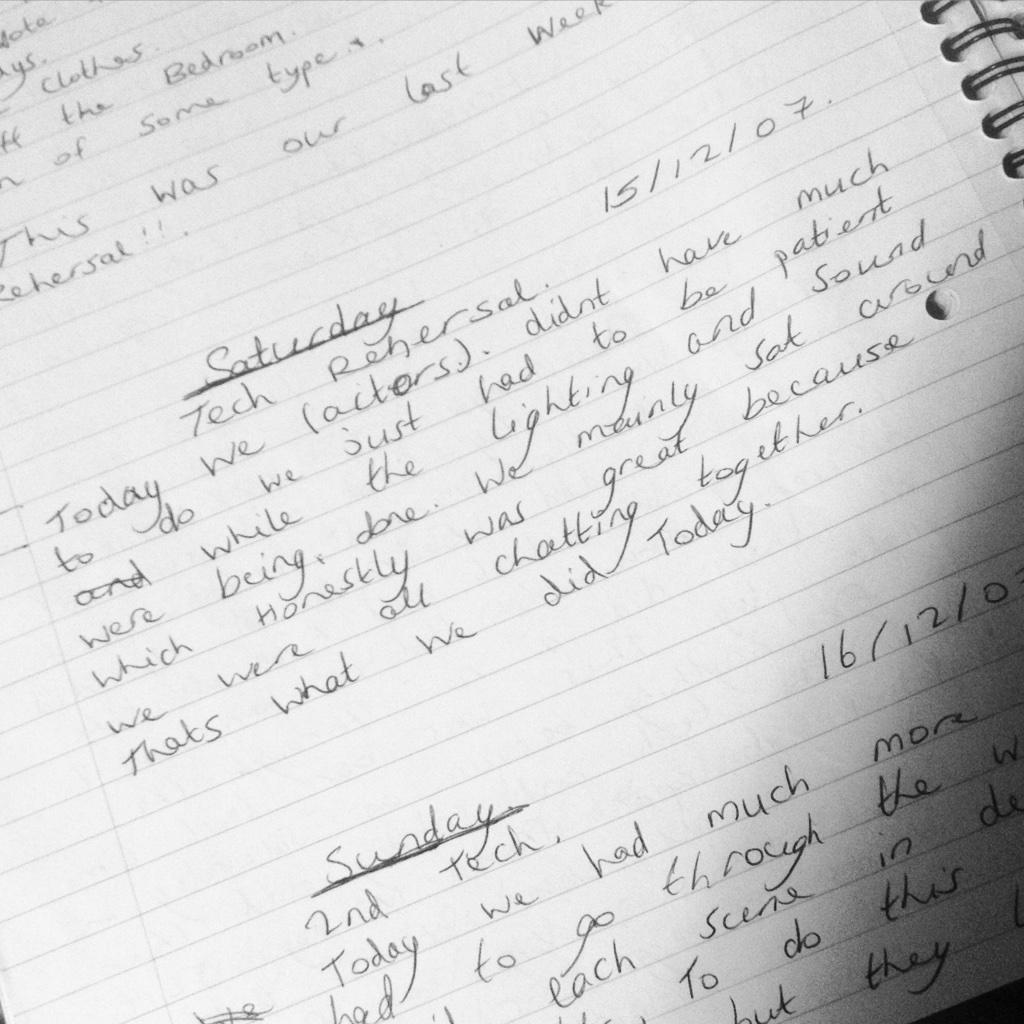 Clothes.
the Bedroom.
of some type.
This was our last week
Rehersal!!.
15/12/07.
Saturday
Tech Rehersal.
Today we (actors). didnt have much
to do we just had to be patient
and while the lighting and sound
were being. done. We mainly sat around
which Honestly was great because
we were all chatting together.
Thats what we did Today.
16/12/0
Sunday.
2nd Tech.
Today we had much more
had to go through the
each scene in
To do this
but they